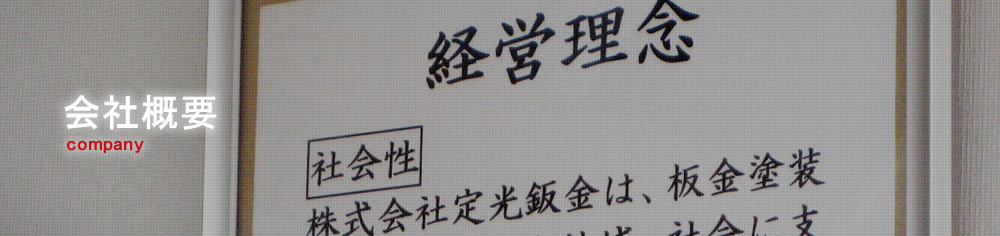 会社概要
company
経営理念
社会性
株式会社定光鈑金は、板金塗装
社会に支